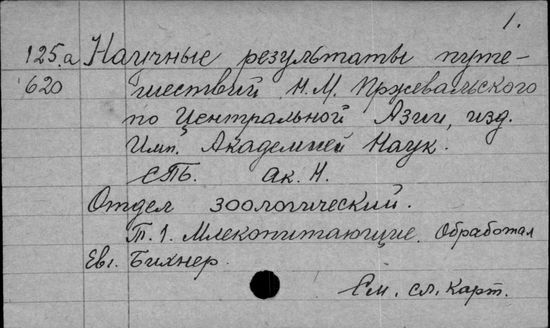 1.
125.а Научные результаты путе-
620 шествий Н.М. Пржевальского
по Центральной Азии, изд.
Имп. Академией Наук.
СПб. Ак. Н.
Отдел зоологический.
Т.1. Млекопитающие. Обработал
Евг. Бихнер.
См. сл. карт.